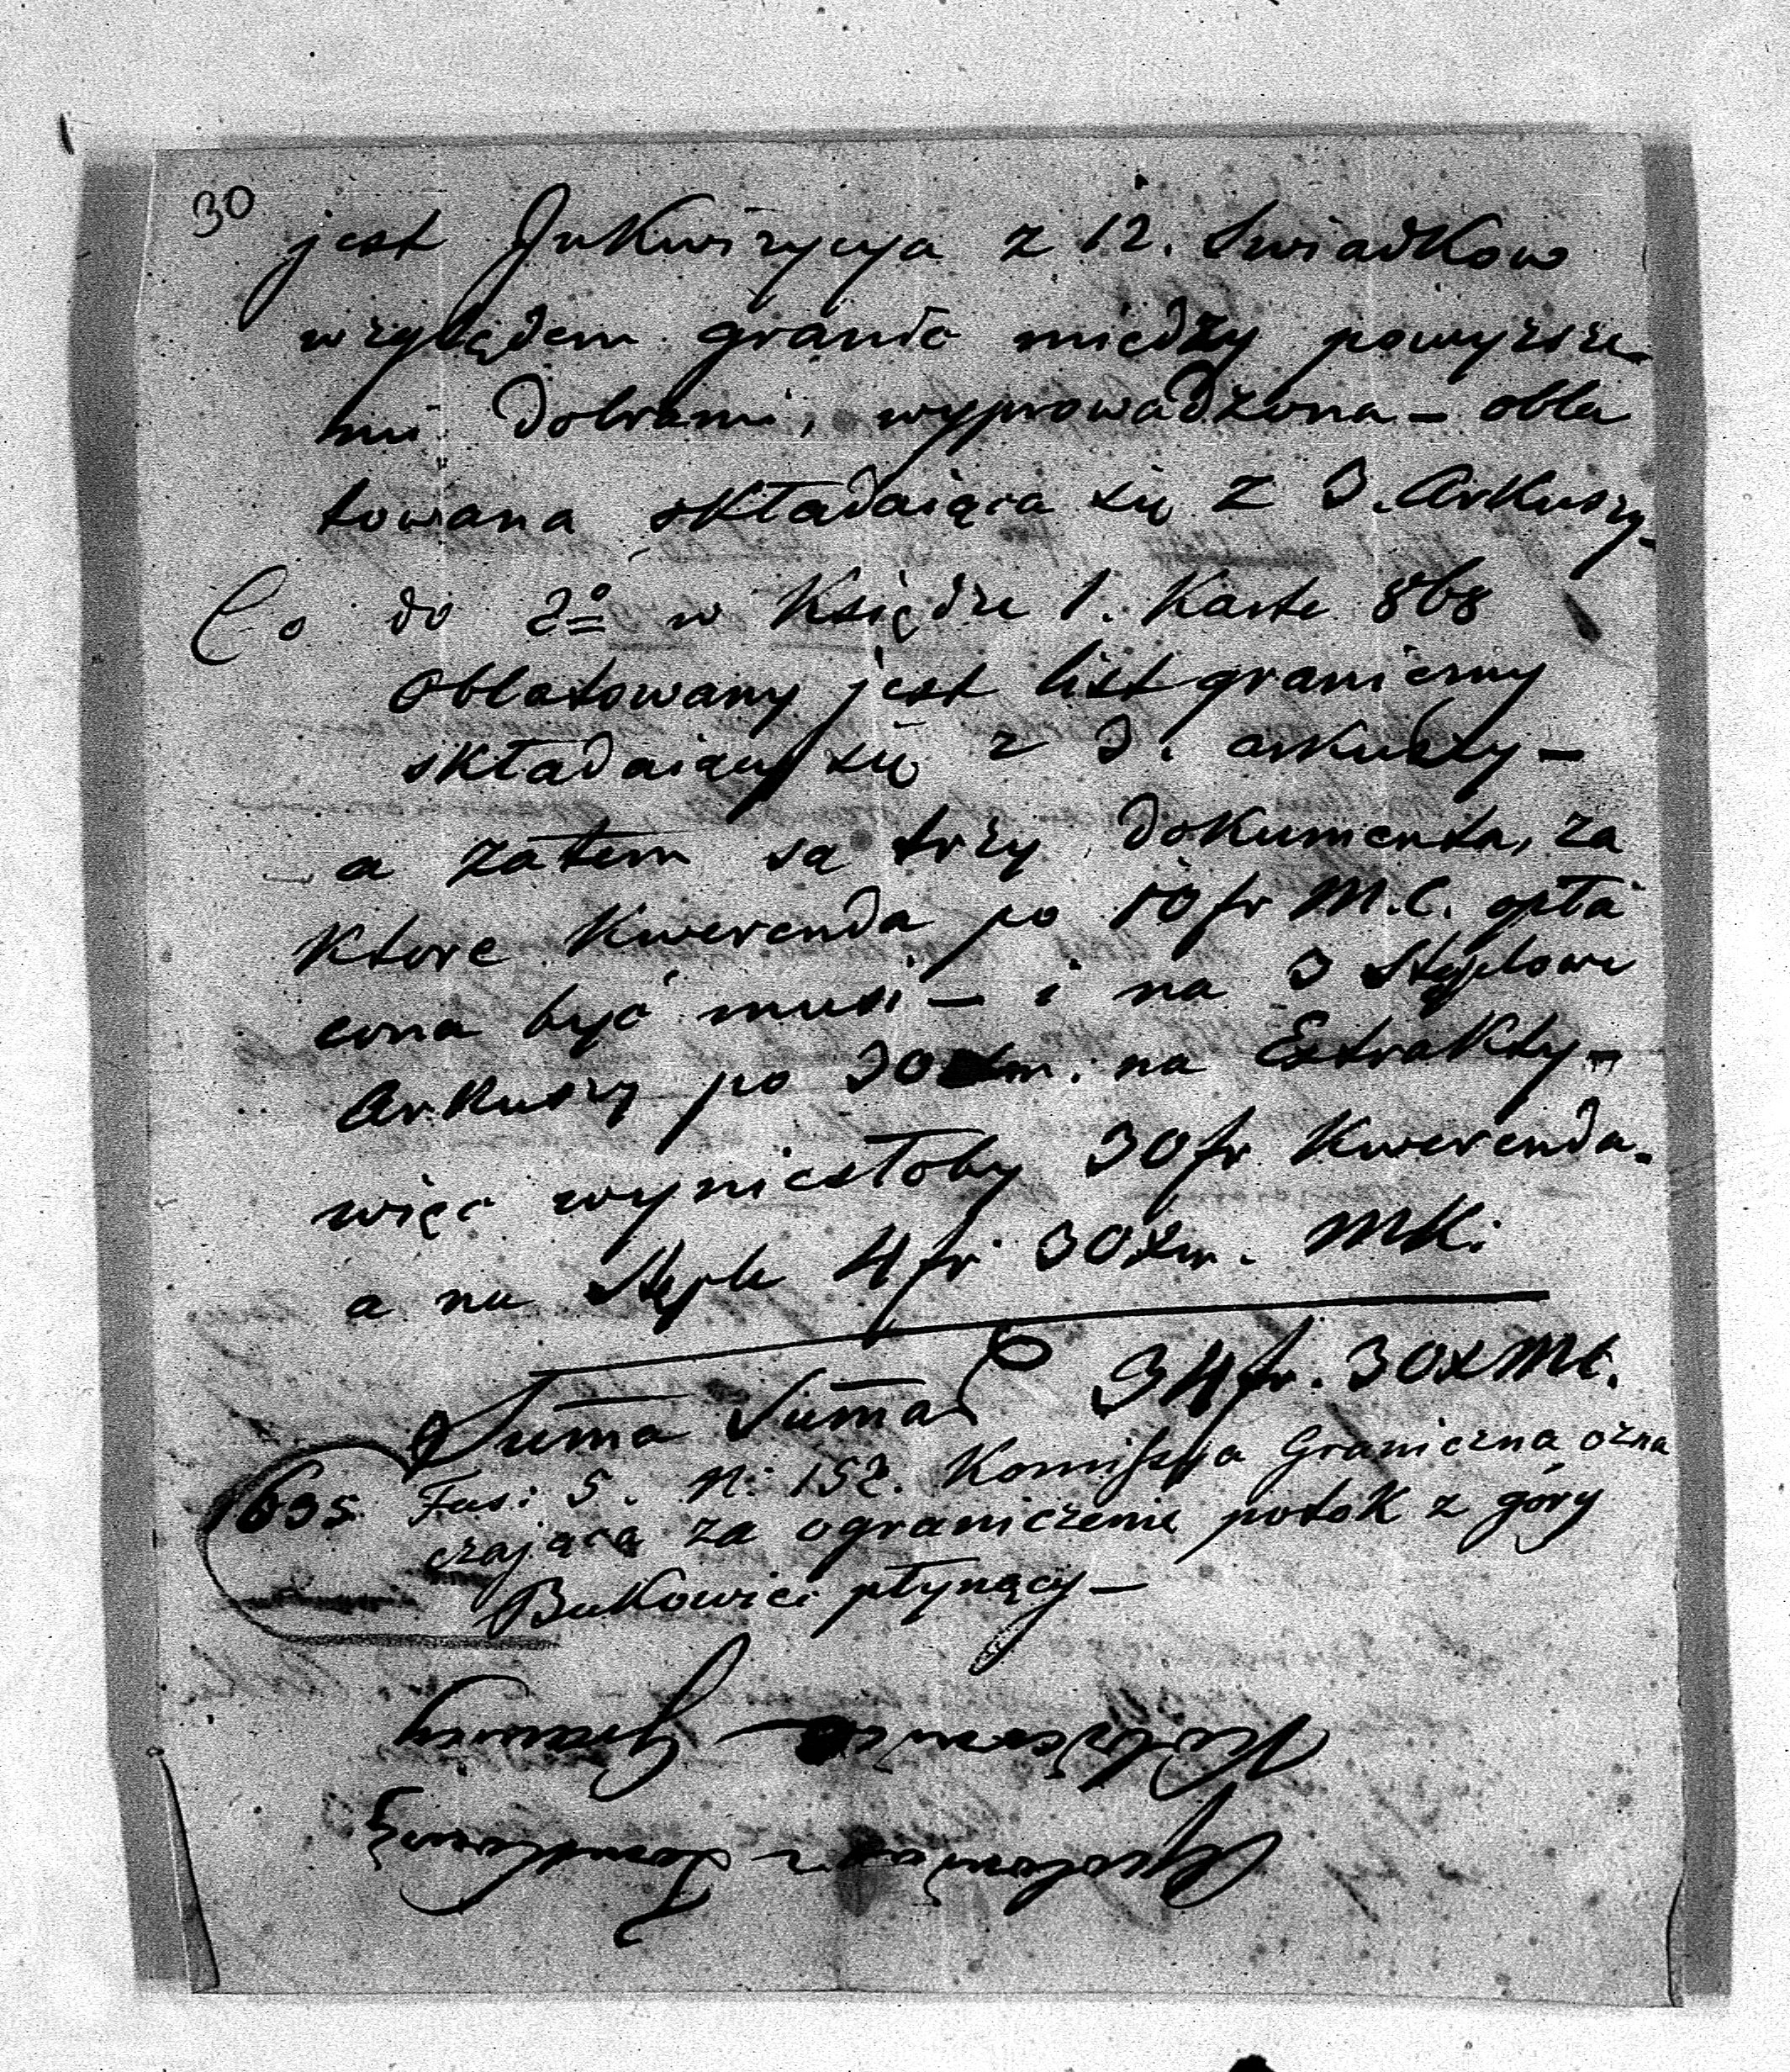 30
jest Inkwizycya z 12. Swiadkow
względem granic między powyższe-
mi dobrami, wyprowadzona – obla
towana składaiąca się z 3. Arkuszy –
Co do 2º w Księdze 1. Karte 868
oblatowany jest list graniczny
składaiący się z 3. arkuszy –
a zatem są trzy dokumenta, za
ktore Kwerenda po 10 fr M.C. opła
cona być musi – i na 3 Stęplowe
Arkuszy po 30 xm. na Extrakty –
więc wyniesłoby 30 fr Kwerenda.
a na Stęple 4 fr 30 xm. MK.
Suma Suma 34 fr. 30 x MC.
1635. Fas: 5. N: 152. Komissya Graniczna ozna
czająca za ograniczenie potok z góry
Bukowici płynący –